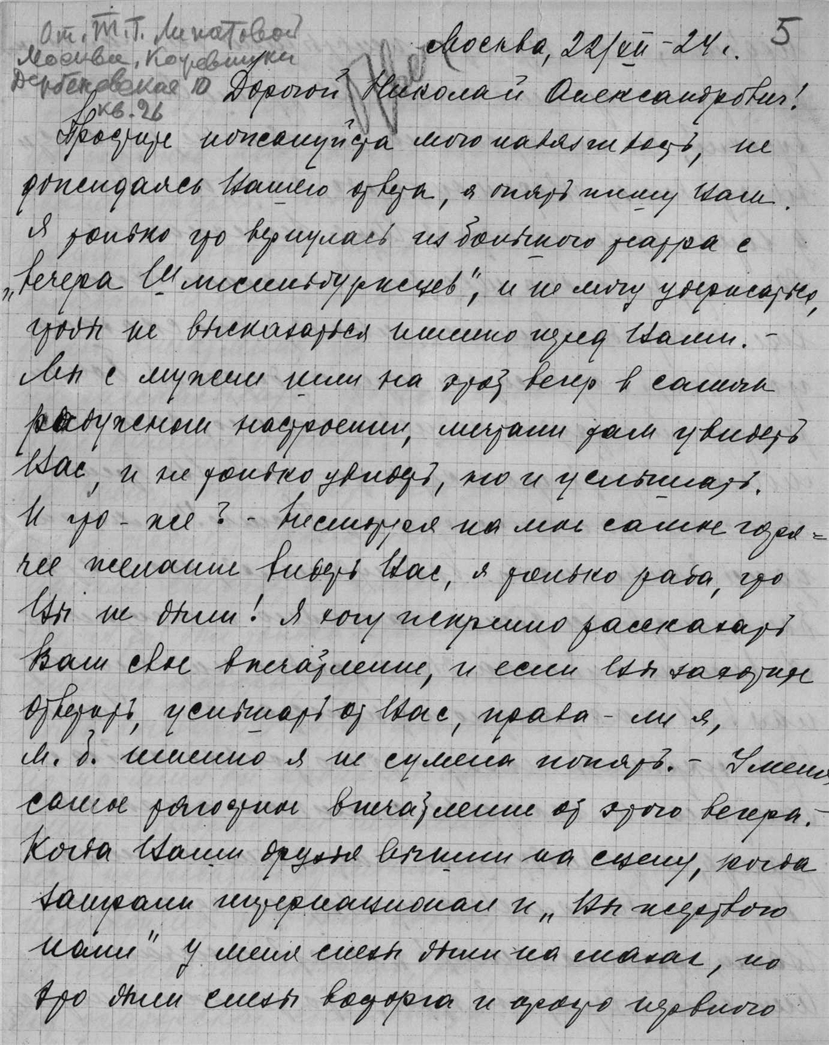 От. Т. Т. Липатовой
Москва, Кожевники
Дербеневская 10
кв. 26
5
Москва, 22/XII-24 г.
Дорогой Николай Александрович!
Простите пожалуйста мою навязчивость, не
дожидаясь Вашего ответа, я опять пишу Вам.
Я только что вернулась из большого театра с
„вечера Шлиссельбуржцев", и не могу удержаться,
чтобы не высказаться именно перед Вами. -
Мы с мужем шли на этот вечер в самом
радужном настроении, мечтали там увидеть
Вас, и не только увидеть, но и услышать.
И что-же? - Несмотря на мое самое горя=
чее желание видеть Вас, я только рада, что
Вы не были! Я хочу искренно рассказать
Вам свое впечатление, и если Вы захотите
ответить, услышать от Вас, права-ли я,
м. б. именно я не сумела понять. - У меня
самое тягостное впечатление от этого вечера. -
Когда Ваши друзья вышли на сцену, когда
заиграли интернационал и „Вы жертвою
пали" у меня слезы были на глазах, но
это были слезы восторга и просто нервного